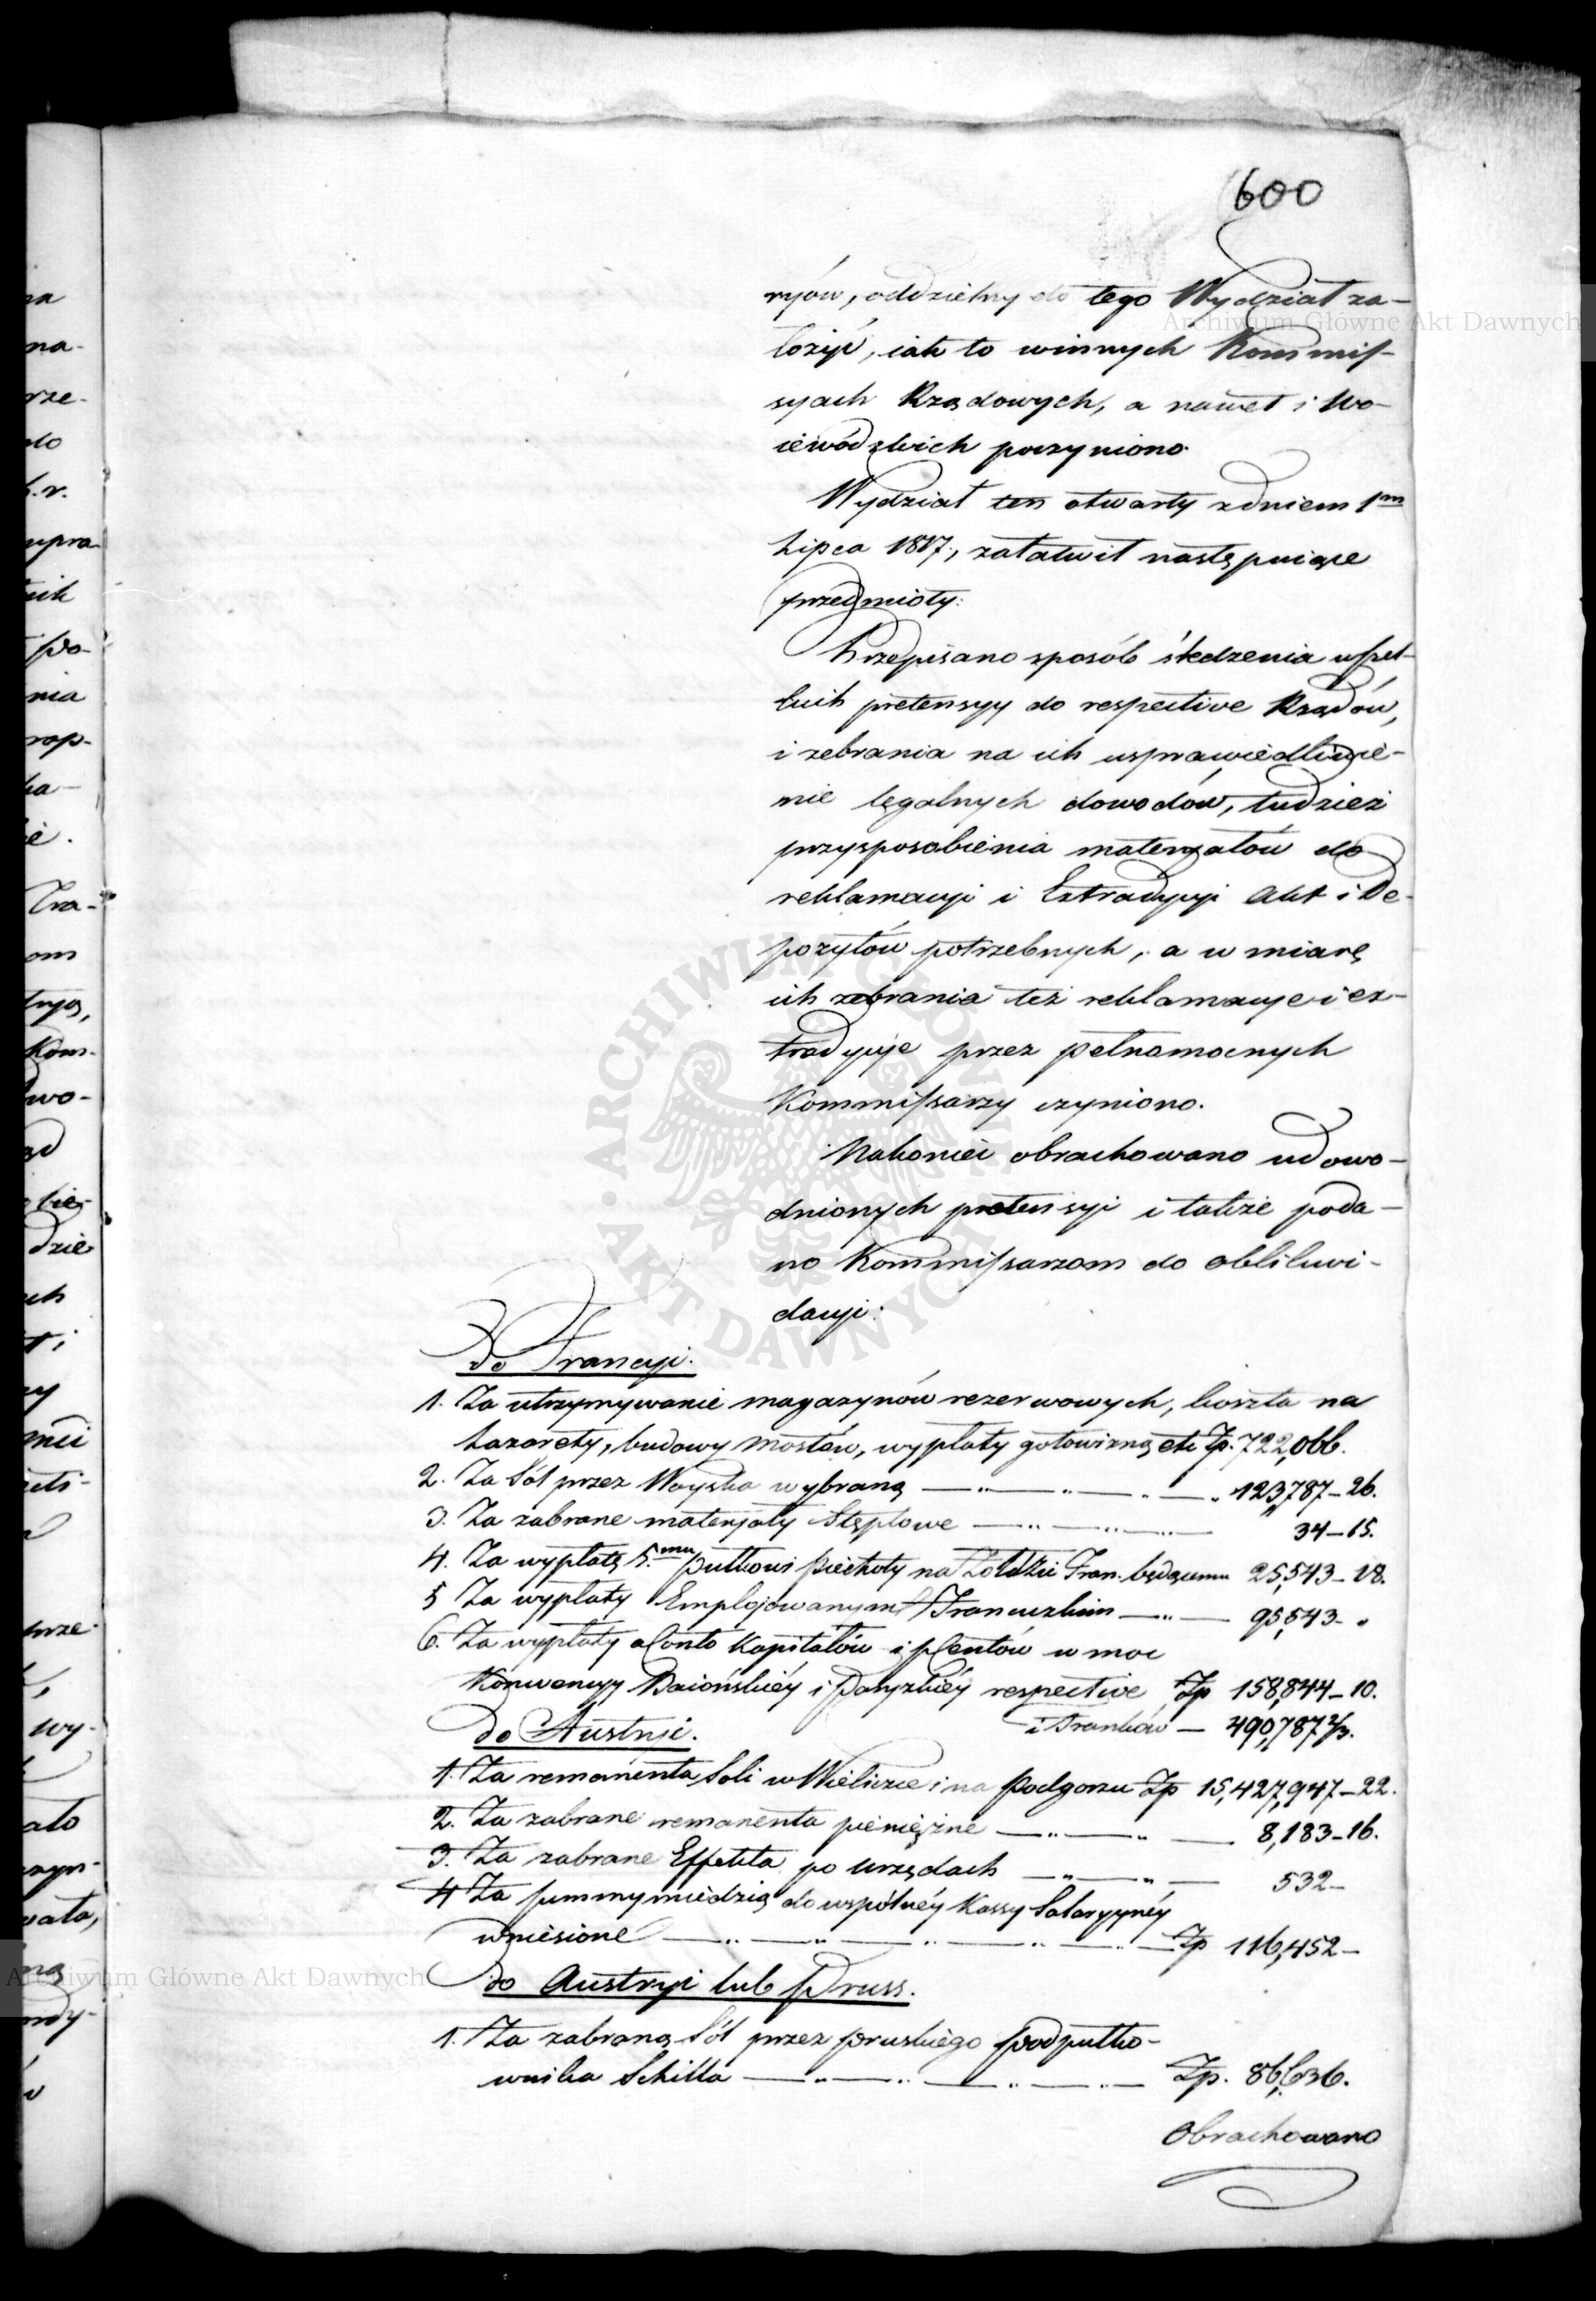 600
ryów, oddzielny do tego Wydział za-
łożyć, iak to winnych Kommis-
syach Rządowych, a nawet i Wo-
iewódzkich poczyniono.
Wydział ten otwarty zdniem 1m
Lipca 1817, załatwił następuiące
przedmioty:
Przepisano sposób śledzenia wszel-
kich pretensyy do respective Rządów,
i zebrania na ich usprawiedliwie-
nie legalnych dowodów, tudzież
przysposobienia materyałów do
reklamacyi i Extradycyi Akt i De-
pozytów potrzebnych, a w miarę
ich zebrania też reklamacye i ex-
tradycye przez pełnomocnych
Kommissarzy czyniono.
Nakoniec obrachowano udowo-
dnionych pretensyi i także poda-
no Kommissarzom do oblikwi-
dacyi:
do Francyi.
1. Za utrzymywanie magazynów rezerwowych, koszta na
Lazarety, budowy mostów, wypłaty gotowizną etc Zp. 722,066.
2. Za Sól przez Woyska wybraną — " — " — " — " 123,787–26.
3. Za zabrane materyały Stęplowe — " — " — 34–15.
4. Za wypłatę 5.mu pułkowi piechoty na Żołdzie Fran. będącemu 25,543–18.
5 Za wypłaty Employowanym Francuzkim — " — 95,543– "
6. Za wypłaty a Conto Kapitałów i pCentów w moc
Konwencyy Baiońskiéy i Paryzkiéy respective Zp 158,844–10.
i Franków — 490,787 2/3.
do Austryi.
1. Za remanenta Soli w Wieliczce i na Podgorzu Zp 15,427,947–22.
2. Za zabrane remanenta pieniężne — " — " — 8,183–16.
3. Za zabrane Effekta po Urzędach — " — " — 532–
4 Za summy miedzią do wspólnéy Kassy Salaryynéy
wniesione — " — " — " — " — " — Zp 116,452–
do Austryi lub Pruss.
1. Za zabraną Sól przez pruskiego podpułko-
wnika Schilla — " — " — " — " — Zp. 86,636.
Obrachowano
Archiwum Główne Akt Dawnych
Archiwum Główne Akt Dawnych
· ARCHIWUM GŁÓWNE · AKT DAWNYCH